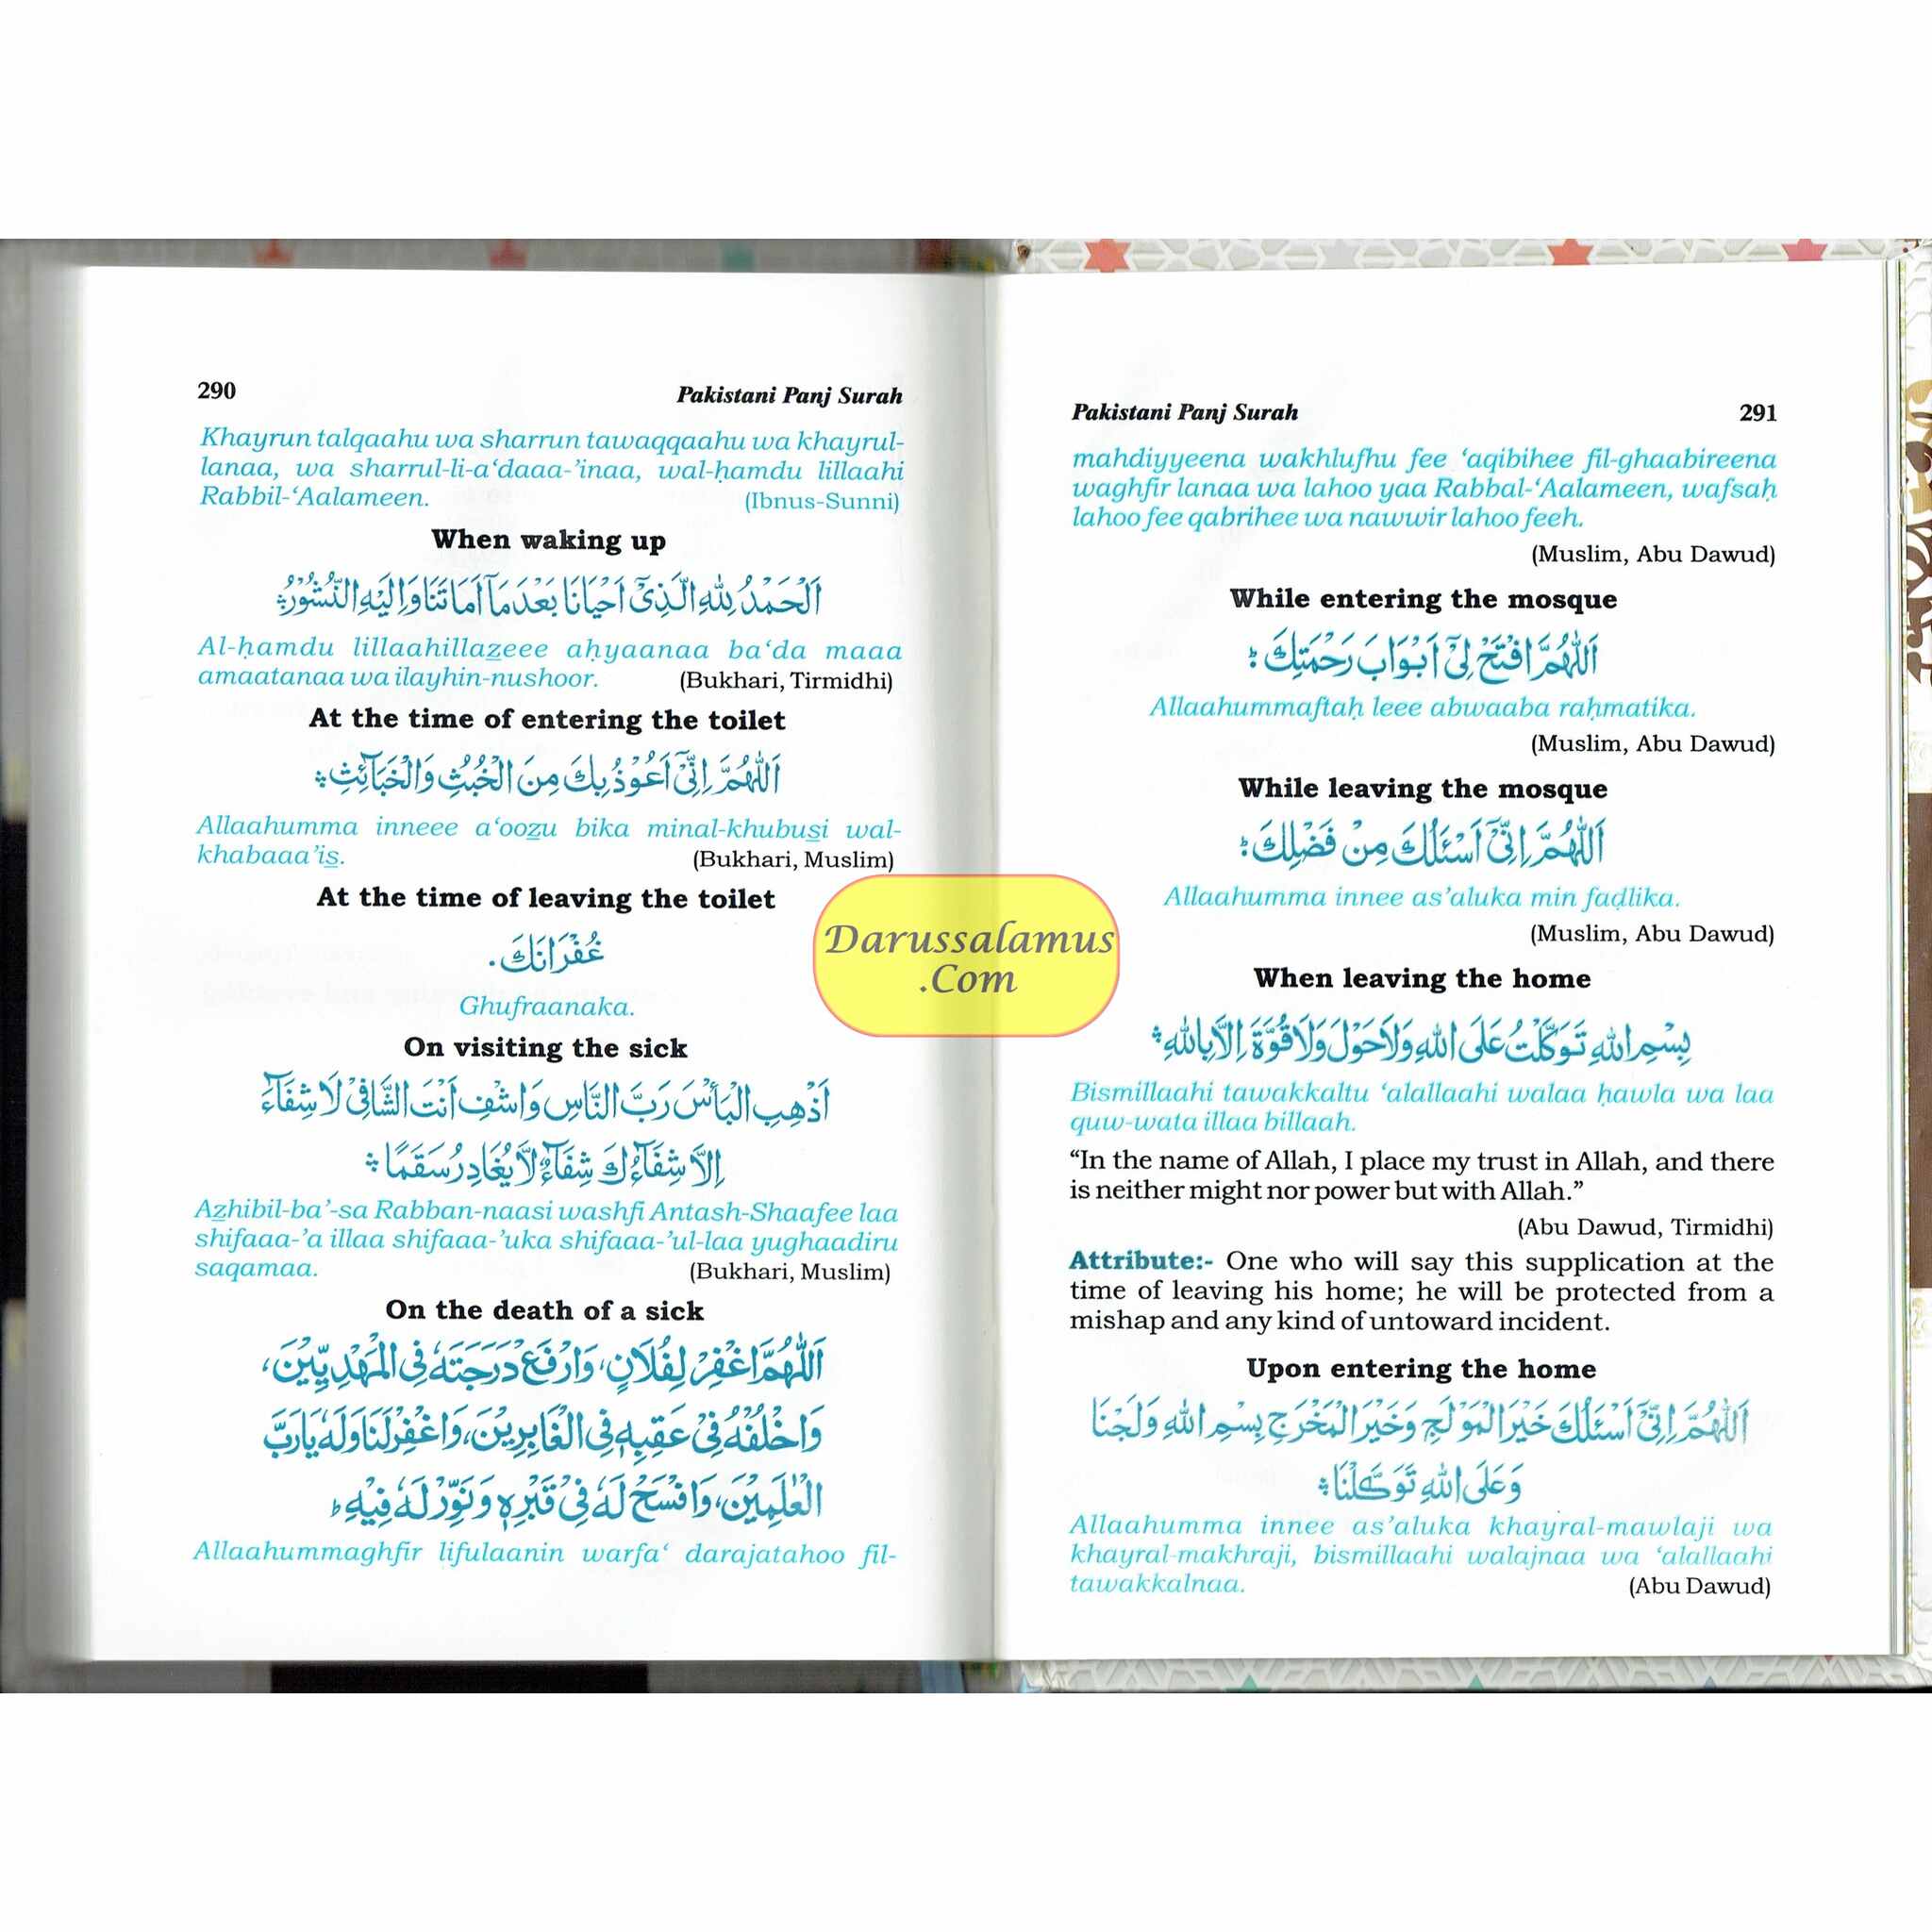 290 Pakistani Panj Surah
Khayrun talqaahu wa sharrun tawaqqaahu wa khayrul-
lanaa, wa sharrul-li-a‘daaa-’inaa, wal-ḥamdu lillaahi
Rabbil-‘Aalameen. (Ibnus-Sunni)
When waking up
اَلْحَمْدُ لِلّٰهِ الَّذِىْٓ اَحْيَانَا بَعْدَ مَآ اَمَاتَنَا وَاِلَيْهِ النُّشُوْرُ ؞
Al-ḥamdu lillaahillaz̲eee aḥyaanaa ba‘da maaa
amaatanaa wa ilayhin-nushoor. (Bukhari, Tirmidhi)
At the time of entering the toilet
اَللّٰهُمَّ اِنِّىْٓ اَعُوْذُ بِكَ مِنَ الْخُبُثِ وَالْخَبَآئِثِ ؞
Allaahumma inneee a‘ooz̲u bika minal-khubus̲i wal-
khabaaa’is̲. (Bukhari, Muslim)
At the time of leaving the toilet
غُفْرَانَكَ.
Ghufraanaka.
On visiting the sick
اَذْهِبِ الْبَأْسَ رَبَّ النَّاسِ وَاشْفِ اَنْتَ الشَّافِىْ لَا شِفَآءَ
اِلَّا شِفَآؤُكَ شِفَآءً لَّا يُغَادِرُ سَقَمًا ؞
Az̲hibil-ba’-sa Rabban-naasi washfi Antash-Shaafee laa
shifaaa-’a illaa shifaaa-’uka shifaaa-’ul-laa yughaadiru
saqamaa. (Bukhari, Muslim)
On the death of a sick
اَللّٰهُمَّ اغْفِرْ لِفُلَانٍ، وَارْفَعْ دَرَجَتَهٗ فِى الْمَهْدِيِّيْنَ،
وَاخْلُفْهُ فِىْ عَقِبِهٖ فِى الْغَابِرِيْنَ، وَاغْفِرْ لَنَا وَلَهٗ يَا رَبَّ
الْعٰلَمِيْنَ، وَافْسَحْ لَهٗ فِىْ قَبْرِهٖ وَنَوِّرْ لَهٗ فِيْهِ ؕ
Allaahummaghfir lifulaanin warfa‘ darajatahoo fil-
Darussalamus
.Com
Pakistani Panj Surah 291
mahdiyyeena wakhlufhu fee ‘aqibihee fil-ghaabireena
waghfir lanaa wa lahoo yaa Rabbal-‘Aalameen, wafsaḥ
lahoo fee qabrihee wa nawwir lahoo feeh.
(Muslim, Abu Dawud)
While entering the mosque
اَللّٰهُمَّ افْتَحْ لِىْٓ اَبْوَابَ رَحْمَتِكَ ؕ
Allaahummaftaḥ leee abwaaba raḥmatika.
(Muslim, Abu Dawud)
While leaving the mosque
اَللّٰهُمَّ اِنِّىْٓ اَسْئَلُكَ مِنْ فَضْلِكَ ؕ
Allaahumma innee as’aluka min faḍlika.
(Muslim, Abu Dawud)
When leaving the home
بِسْمِ اللهِ تَوَكَّلْتُ عَلَى اللهِ وَلَا حَوْلَ وَلَا قُوَّةَ اِلَّا بِاللهِ ؞
Bismillaahi tawakkaltu ‘alallaahi walaa ḥawla wa laa
quw-wata illaa billaah.
“In the name of Allah, I place my trust in Allah, and there
is neither might nor power but with Allah.”
(Abu Dawud, Tirmidhi)
Attribute:- One who will say this supplication at the
time of leaving his home; he will be protected from a
mishap and any kind of untoward incident.
Upon entering the home
اَللّٰهُمَّ اِنِّىْٓ اَسْئَلُكَ خَيْرَ الْمَوْلَجِ وَخَيْرَ الْمَخْرَجِ بِسْمِ اللهِ وَلَجْنَا
وَعَلَى اللهِ تَوَكَّلْنَا ؞
Allaahumma innee as’aluka khayral-mawlaji wa
khayral-makhraji, bismillaahi walajnaa wa ‘alallaahi
tawakkalnaa. (Abu Dawud)